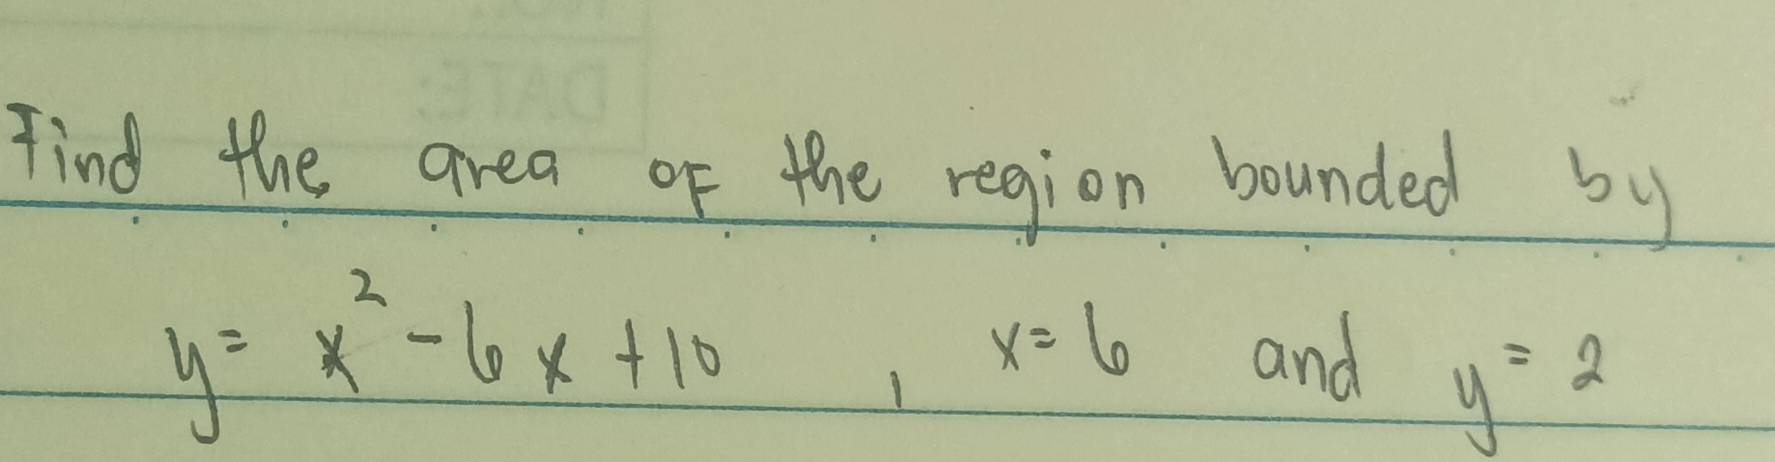 Find the area of the region bounded by
y = x² - 6x + 10 , x = 6 and y = 2
DATE: